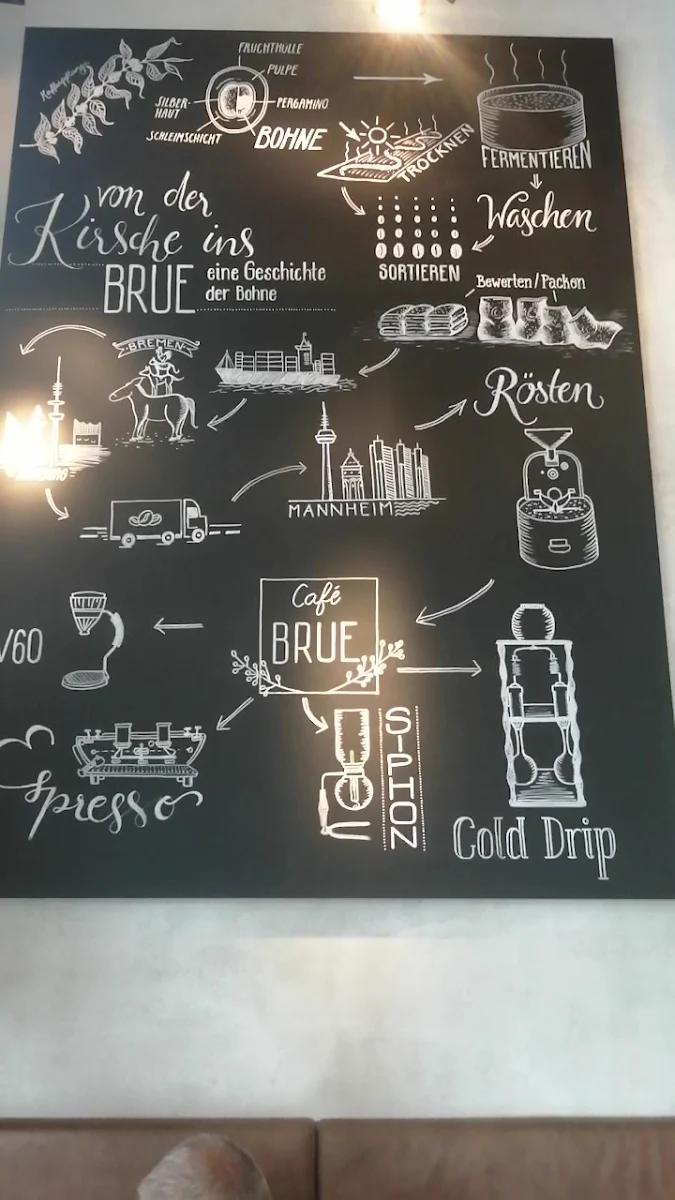 FRUCHTHÜLLE
PULPE
SILBER-
HAUT
PERGAMINO
SCHLEIMSCHICHT
BOHNE
TROCKNEN
FERMENTIEREN
von der
Kirsche ins
BRUE
eine Geschichte
der Bohne
Waschen
SORTIEREN
Bewerten / Packen
BREMEN
Rösten
MANNHEIM
Café
BRUE
V60
Espresso
SIPHON
Cold Drip